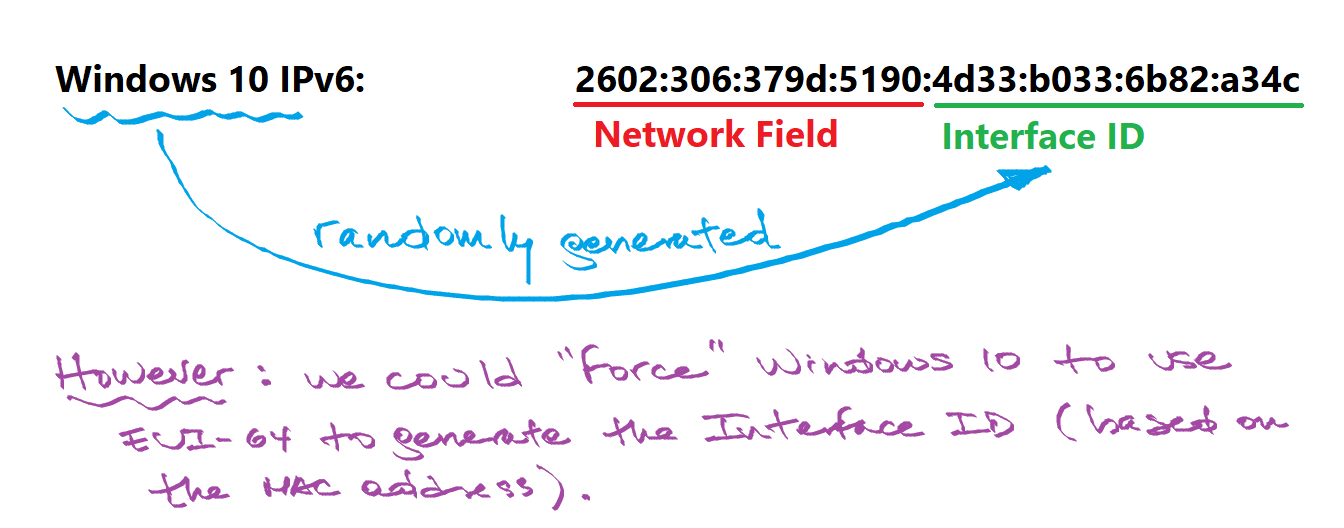 Windows 10 IPv6: 2602:306:379d:5190:4d33:b033:6b82:a34c
Network Field Interface ID
randomly generated
However: we could "force" Windows 10 to use
EUI-64 to generate the Interface ID (based on
the MAC address).